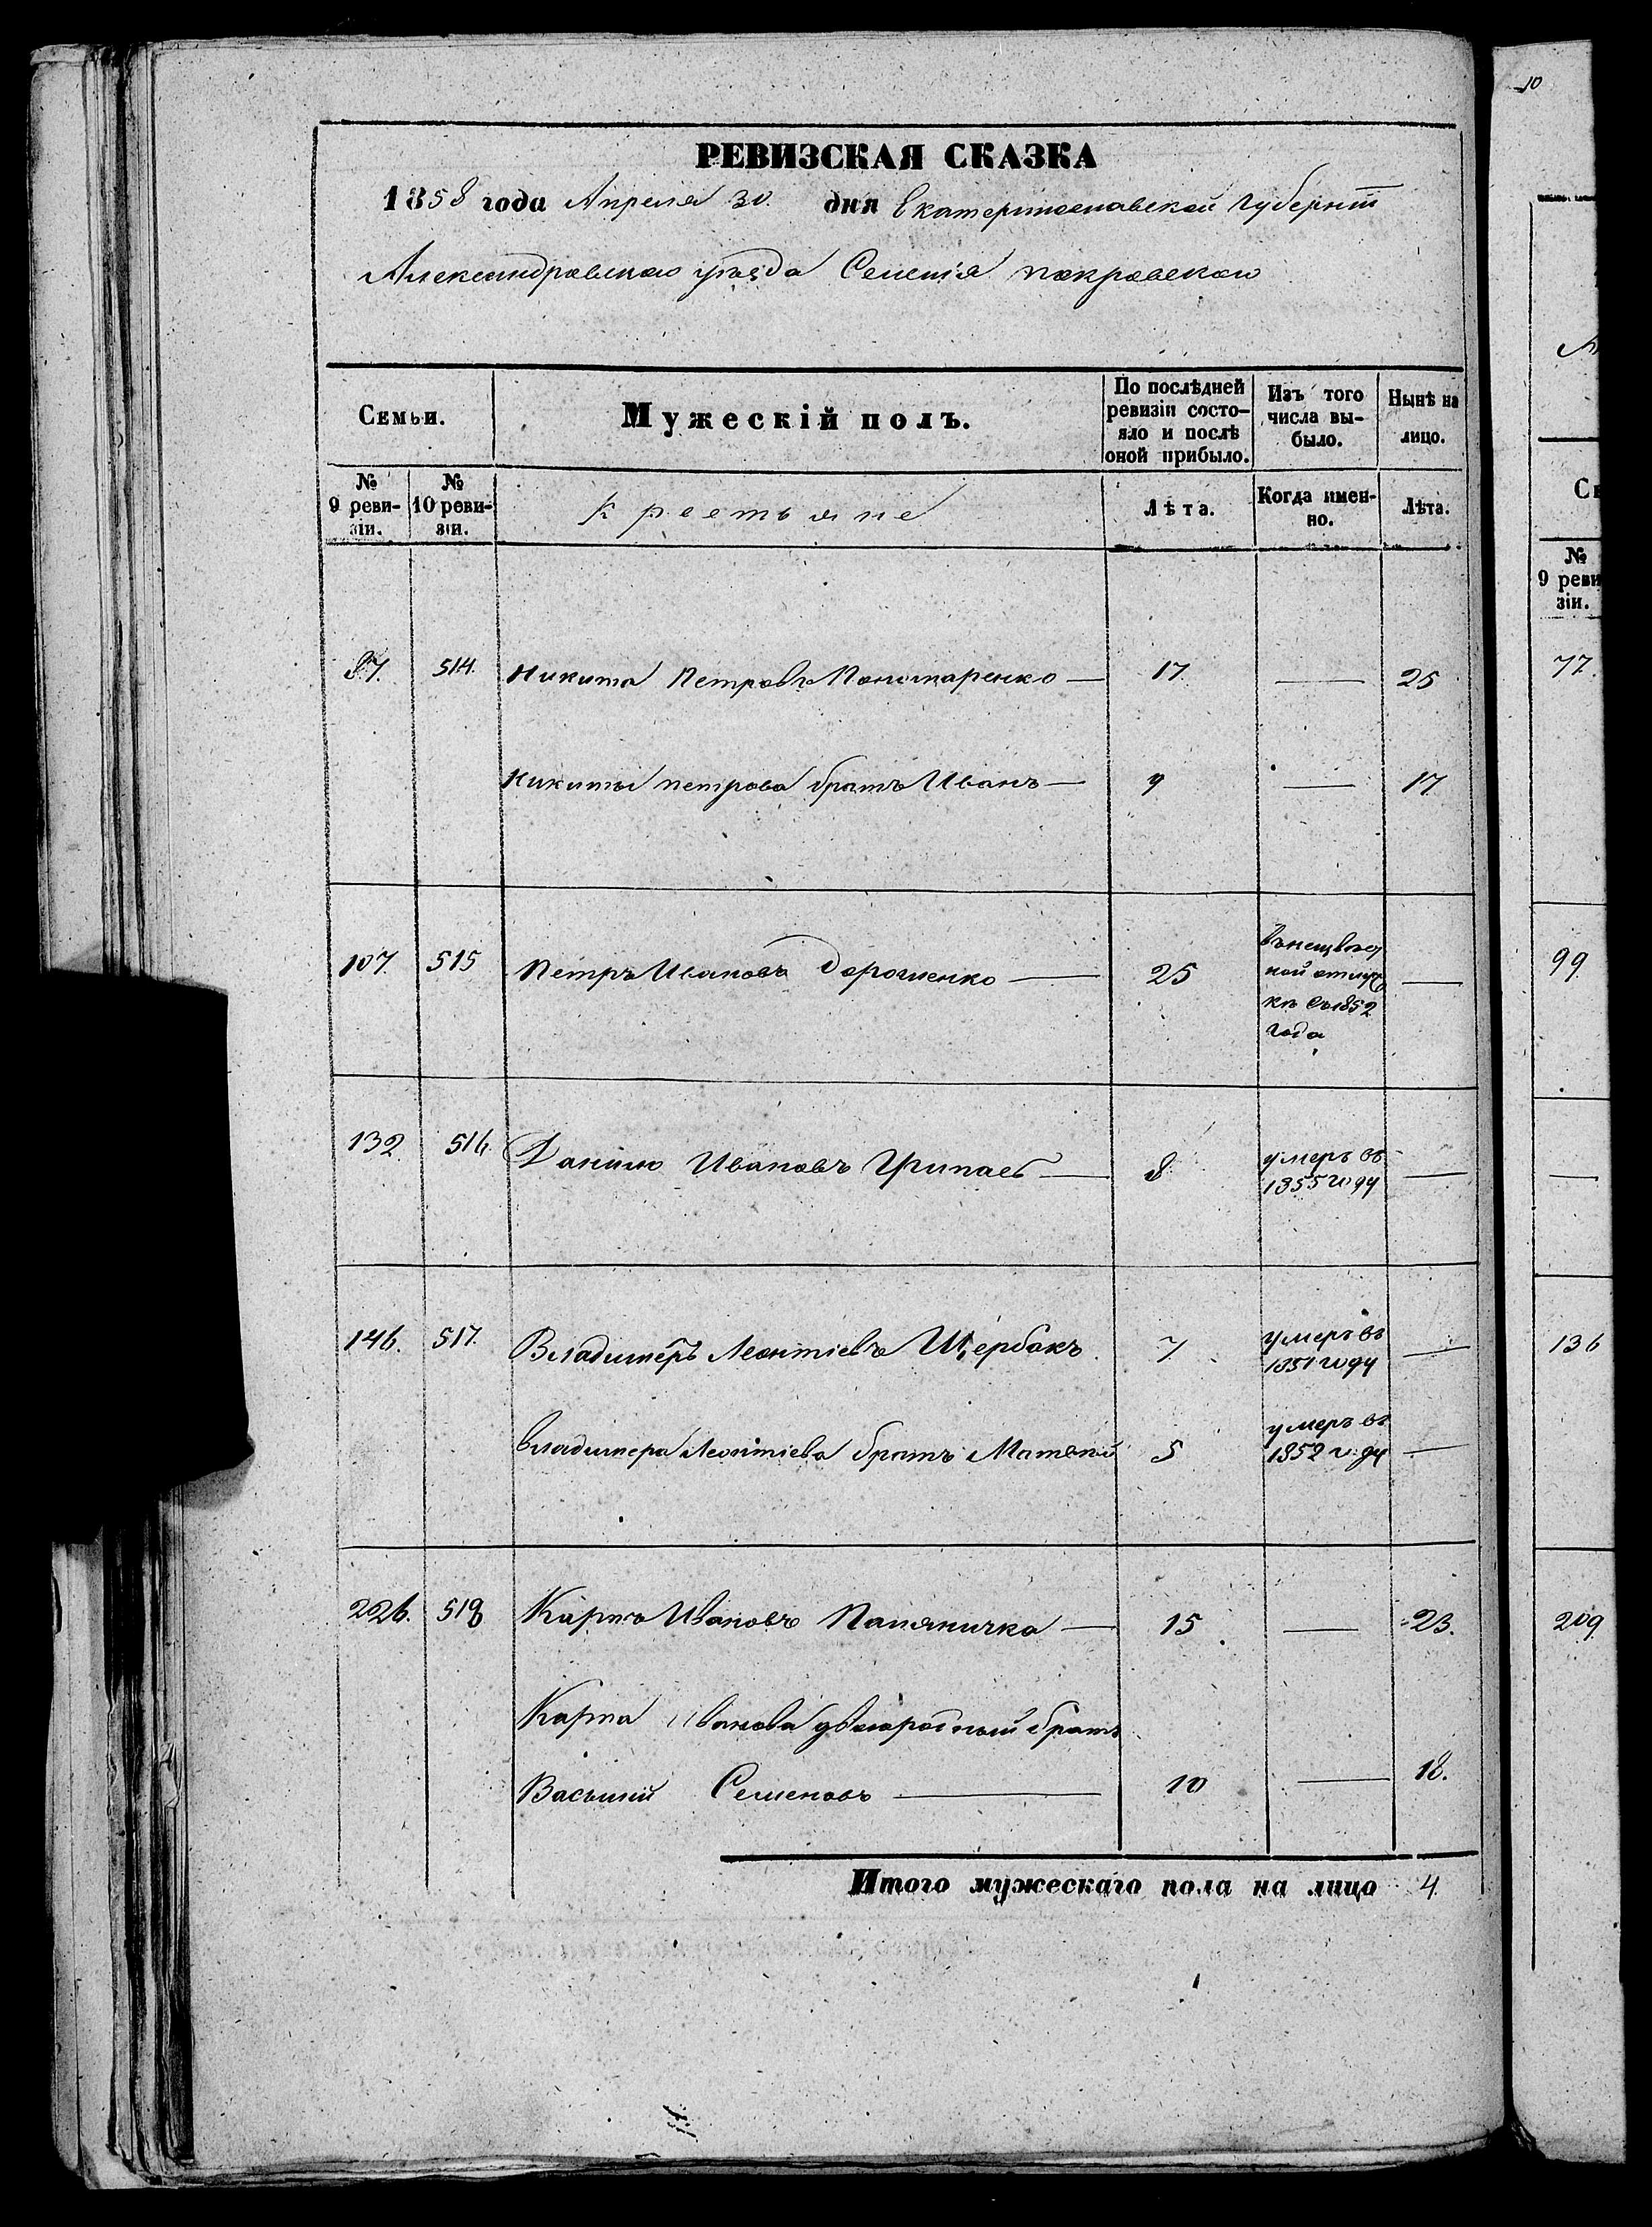 РЕВИЗСКАЯ СКАЗКА
1858 года Апреля 30. дня Екатеринославской Губерніи
Александровскаго уѣзда Селенія покровскаго
Семьи.
Мужескій полъ.
По послѣдней ревизіи состо-
яло и послѣ
оной прибыло.
Изъ того
числа вы-
было.
Нынѣ на
лицо.
№
9 реви-
зіи.
№
10 реви-
зіи.
Крестьяне
Лѣта.
Когда имен-
но.
Лѣта.
87. 514. Никита Петровъ Пономаренко — 17 — 25
Никиты петрова братъ Иванъ — 9 — 17
107. 515 Петръ Ивановъ Дорошенко — 25
кѣ съ 1852
года —
132. 516. Данило Ивановъ — 8 умеръ въ
1855 году —
146. 517. Владимѣръ Леонтіевъ Щербакъ 7. умеръ въ
1851 году —
владимера Леонтіева братъ Матвѣй 5 умеръ въ
1852 году —
226. 518 Карпъ Ивановъ — 15 — 23.
Карпа Иванова двоюродный братъ
Василій Семеновъ — 10 — 18.
Итого мужескаго пола на лицо 4.
10
Се
№
9 реви
зіи.
77.
99.
—
136
209.